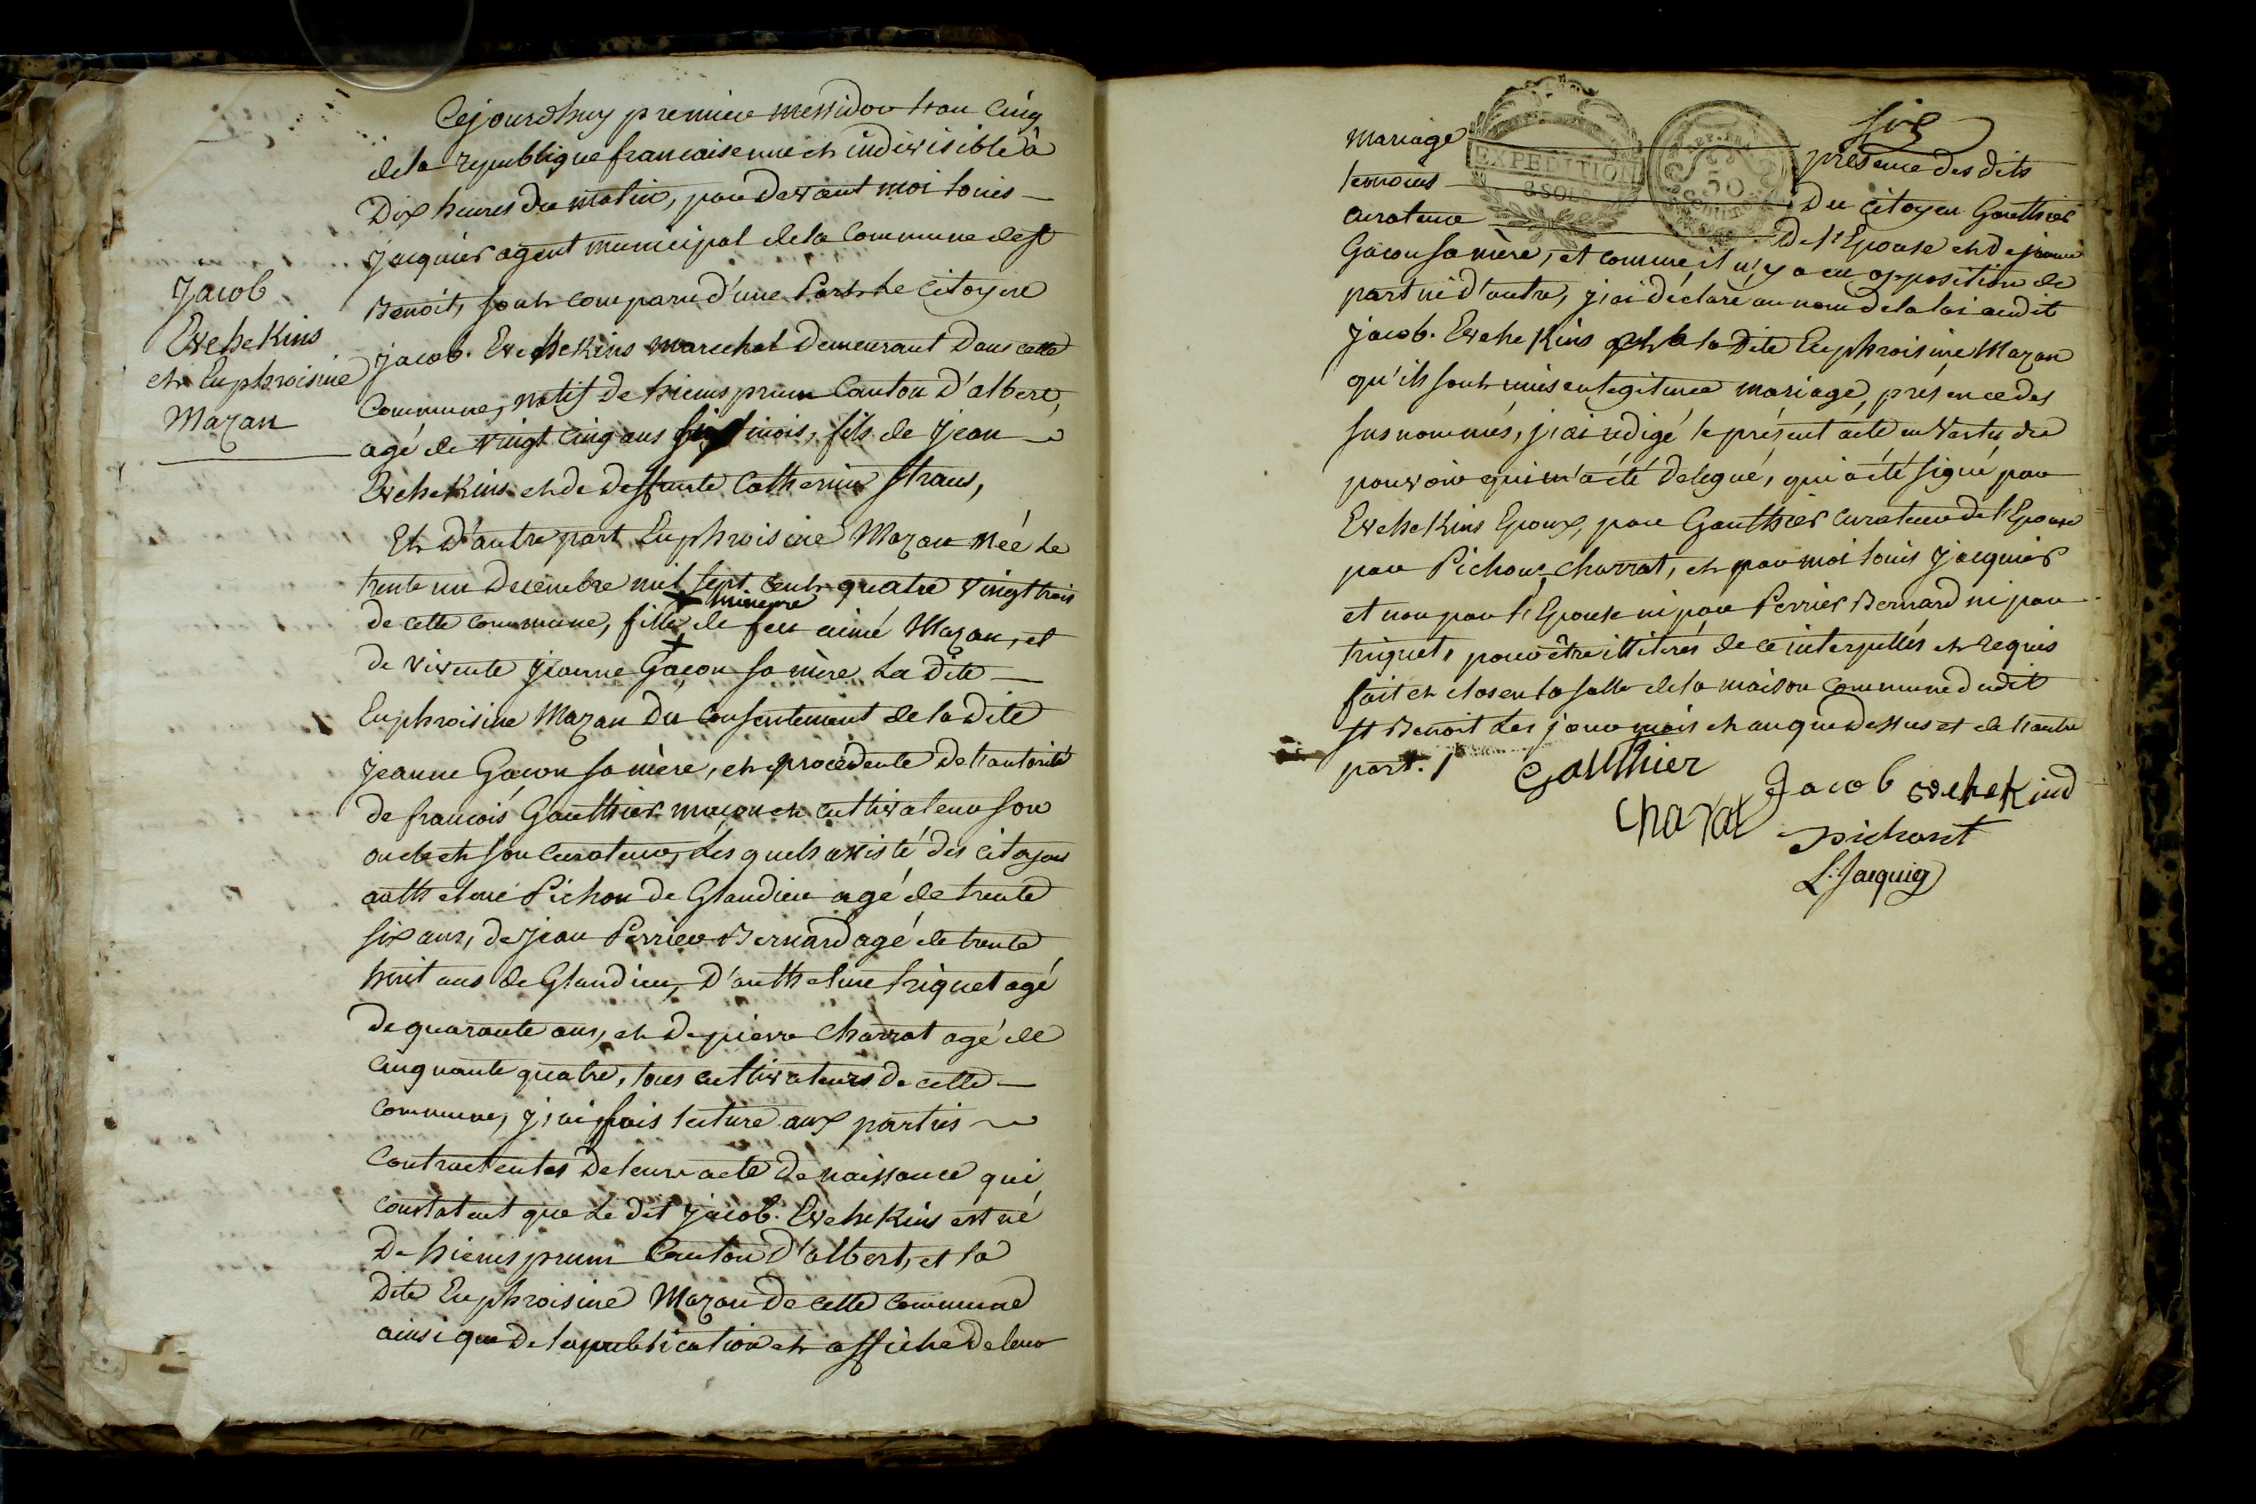 Jacob
Evehekins
et Euphroisine
Mazan
Cejourdhuy premiere messidor l'an Cinq
de la republique francaise une et indivisible à
Dix heures du matin, pardevant moi louis
jacquier agent municipal de la Commune de st
Benoit, sont comparu d'une Part Le Citoyen
jacob. Evehekins marechal Demeurant Dans cette
Commune, natif de hiemsprum Canton D'albert,
agé de vingt Cinq ans six mois, fils de jean
Evehekins et de deffunte Catherine straus,
Et D'autre part Euphroisine Mazan Née Le
trente un Decembre mil sept Cent quatre vingt trois
mineure
de cette commune, fille de feu aimé Mazan, et
de vivente jeanne Gaçon sa mère La Dite
Euphroisine Mazan Du Consentement de la Dite
jeanne Gacon sa mère, et procédente de l'autorité
de francois Gauthier maçon et cultivateur son
oncle et son Curateur, Les quels assisté des Citoyens
anthelme Pichon de Glandieu agé de trente
six ans, de jean Perrier Bernard agé de trente
huit ans de Glandieu, D'anthelme triquet agé
De quarante ans, et De pierre Charrat agé de
Cinquante quatre, tous cultivateurs de cette
Commune, j'ai fais lecture aux parties
Contractentes De leur acte De naissance qui
Constatent que Le dit jacob. Evehekins est né
De hiemsprum Canton D'albert, et la
Dite Euphroisine Mazan De cette Commune
ainsi que De la publication et affiche De leur
six
EXPEDITION
8 SOLS
REP. FRA
50
mariage presence des dits
temoins Du Citoyen Gauthier
curateur De l'Epouse et De jeanne
Gacon sa mère, et comme il n'y a eu opposition de
part ni d'autre, j'ai déclaré au nom de la loi audit
jacob. Evehekins et à la Dite Euphroisine Mazan
qu'ils sont unis en legitime mariage, présence des
susnommés, j'ai redigé le présent acte en vertu du
pouvoir qui m'a été delegué, qui a été signé par
Evehekins Epoux, par Gauthier Curateur de l'Epouse
par Pichon, Charrat, et par moi louis jacquier
et non par l'Epouse ni par Perrier Bernard ni par
triquet, pour être illiterés de ce interpellés et requis
fait et clos en la salle de la maison Commune dudit
st Benoit Les jour mois et an que Dessus et de l'autre
part. /
Gauthier
Jacob evehekind
Charat
pichont
L. Jacquier